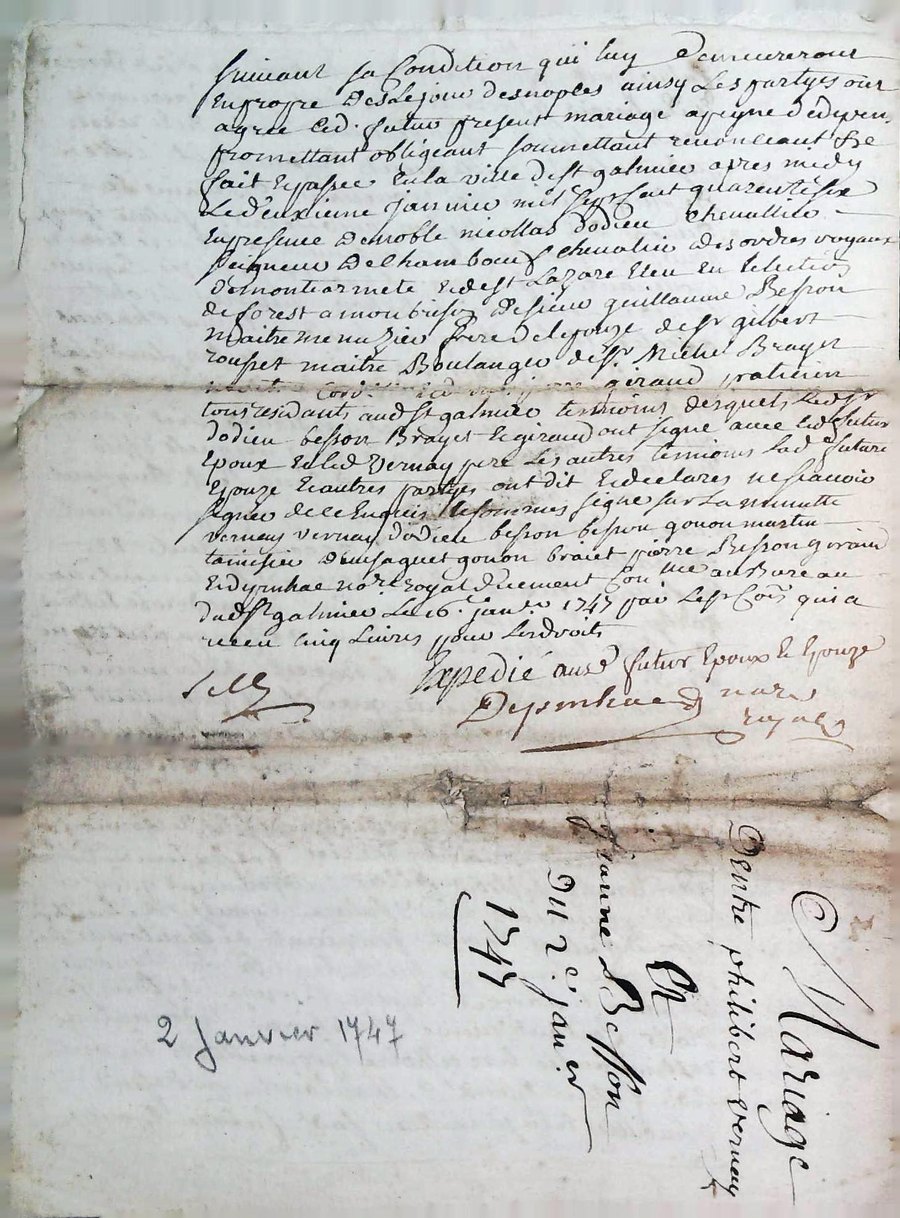 suivant sa Condition qui luy Demeureront
En propre Desle jour desnopces ainsy Les partyes ont
agreé Led. futur present mariage a peyne d'edepen.
promettant obligeant soumettant renonceant &e
fait Epassé En la ville de st galmier apres midy
Le deuxieme Janvier mil sept cent quarente sept
En presence De noble nicollas dodieu Chevallier
seigneur De Chambœuf chevalier des ordres royaux
De montcarmel Et de st Lazare Eleu En Lelection
de forest a montbrison De sieur guillaume Besson
maitre menuzier frere De lepouze de sr gilbert
rousset maitre Boulanger de sr Michel Brayet
giraud praticien
tous residants aud st galmier temoins desquels Led sr
dodieu besson Brayet Et giraud ont signé avec Led futur
Epoux Et led Vernay pere Les autres temoins Lad future
Epouze Et autres partyes ont dit Et declaré ne scavoir
signer de ce Enquis Et sommés signé sur La minutte
vernay vernay dodieu besson besson gonon martin
gonon braiet pierre Besson giraud
no.re royal Duement Con.llé au Bureau
dud st galmier Le 16.e janv.er 1747 par Le sr qui a
receu Cinq Livres pour Les droits
Expedié aus.d futur Epoux Et Epouze
nore
royal
Mariage
Dentre philibert vernay
Et
jeanne Besson
Du 2.e janv.er
1747
2 Janvier 1747